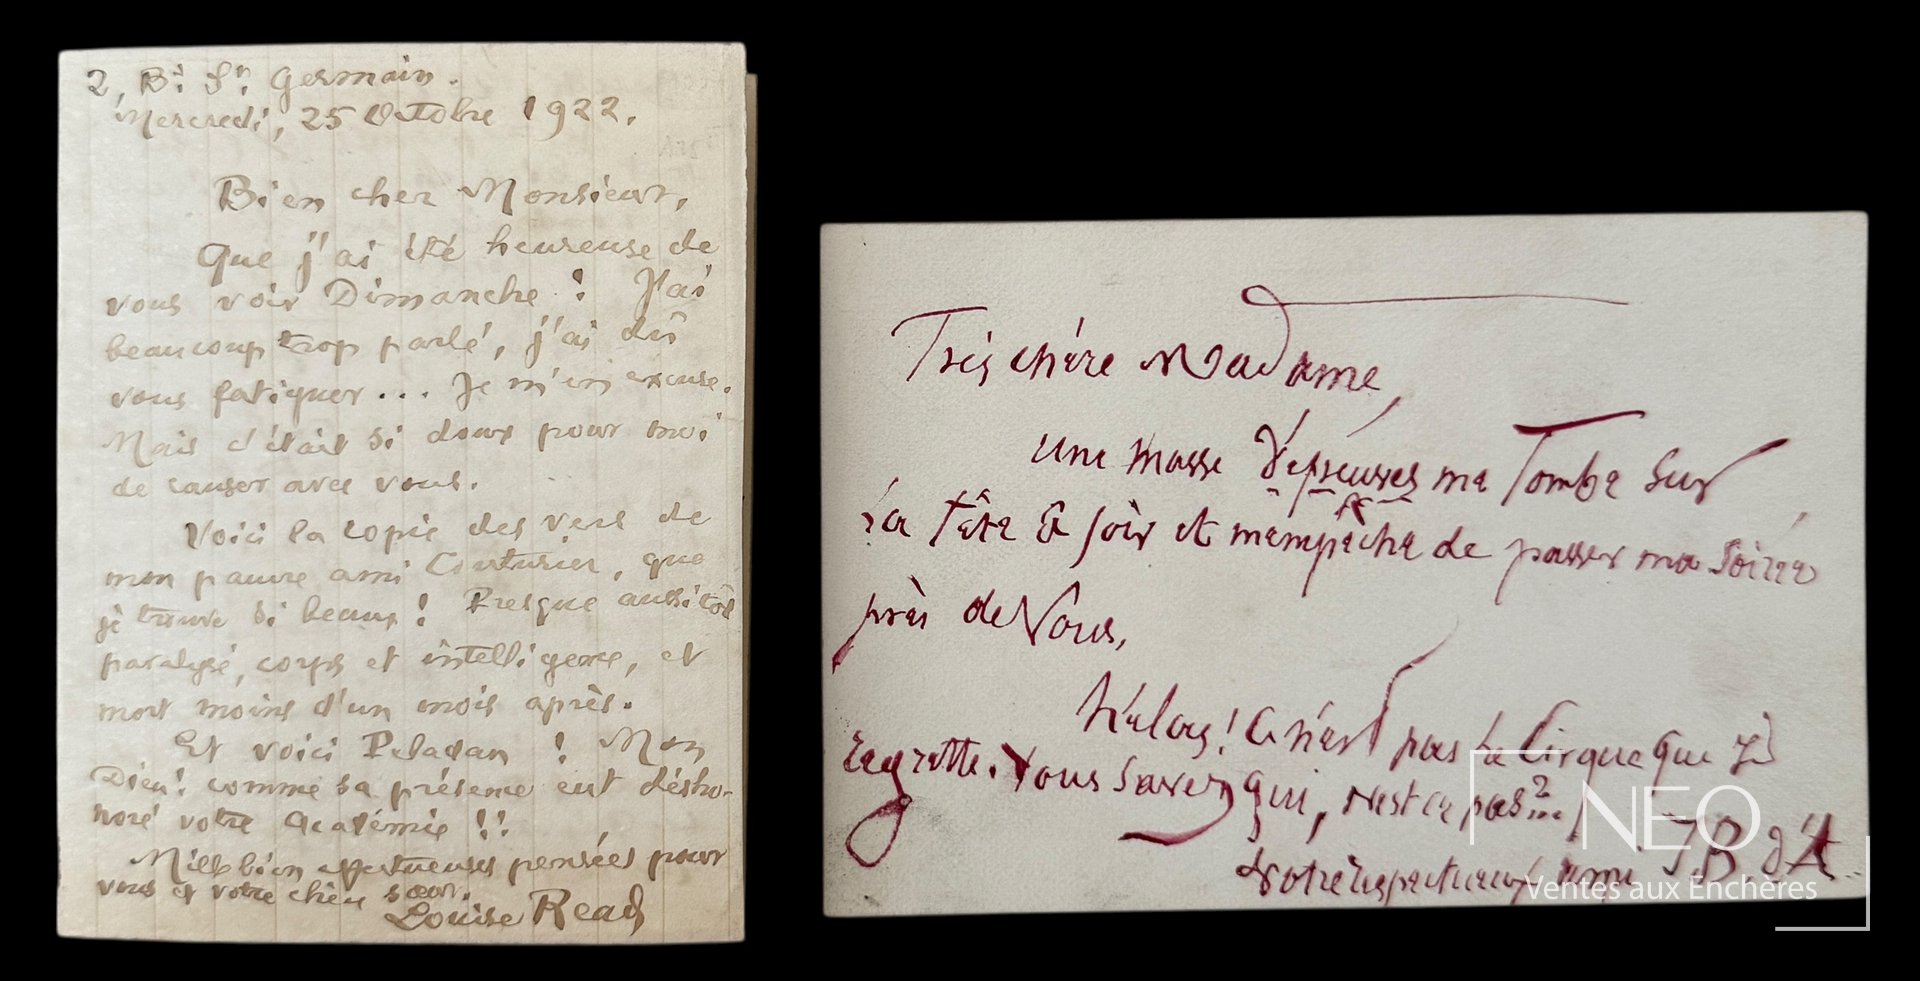 2, Bd St Germain.
Mercredi, 25 Octobre 1922.
Bien cher Monsieur,
Que j'ai été heureuse de
vous voir Dimanche ! J'ai
beaucoup trop parlé, j'ai dû
vous fatiguer... Je m'en excuse.
Mais c'était si doux pour moi
de causer avec vous.
Voici la copie des vers de
mon pauvre ami Couturier, que
je trouve si beaux ! Presque aussitôt
paralysé, corps et intelligence, et
mort moins d'un mois après.
Et voici Peladan ! Mon
Dieu ! comme sa présence eut désho-
noré votre Académie !!
Mille bien affectueuses pensées pour
vous et votre chère sœur.
Louise Read
Très chère Madame,
une masse d'épreuves me Tombe sur
la tête ce soir et m'empêche de passer ma soirée
près de Vous,
Hélas ! Ce n'est pas Le Cirque que je
regrette. Vous savez qui, n'est ce pas ?...
Votre respectueux ami J B. d'A
NEO
Ventes aux Enchères